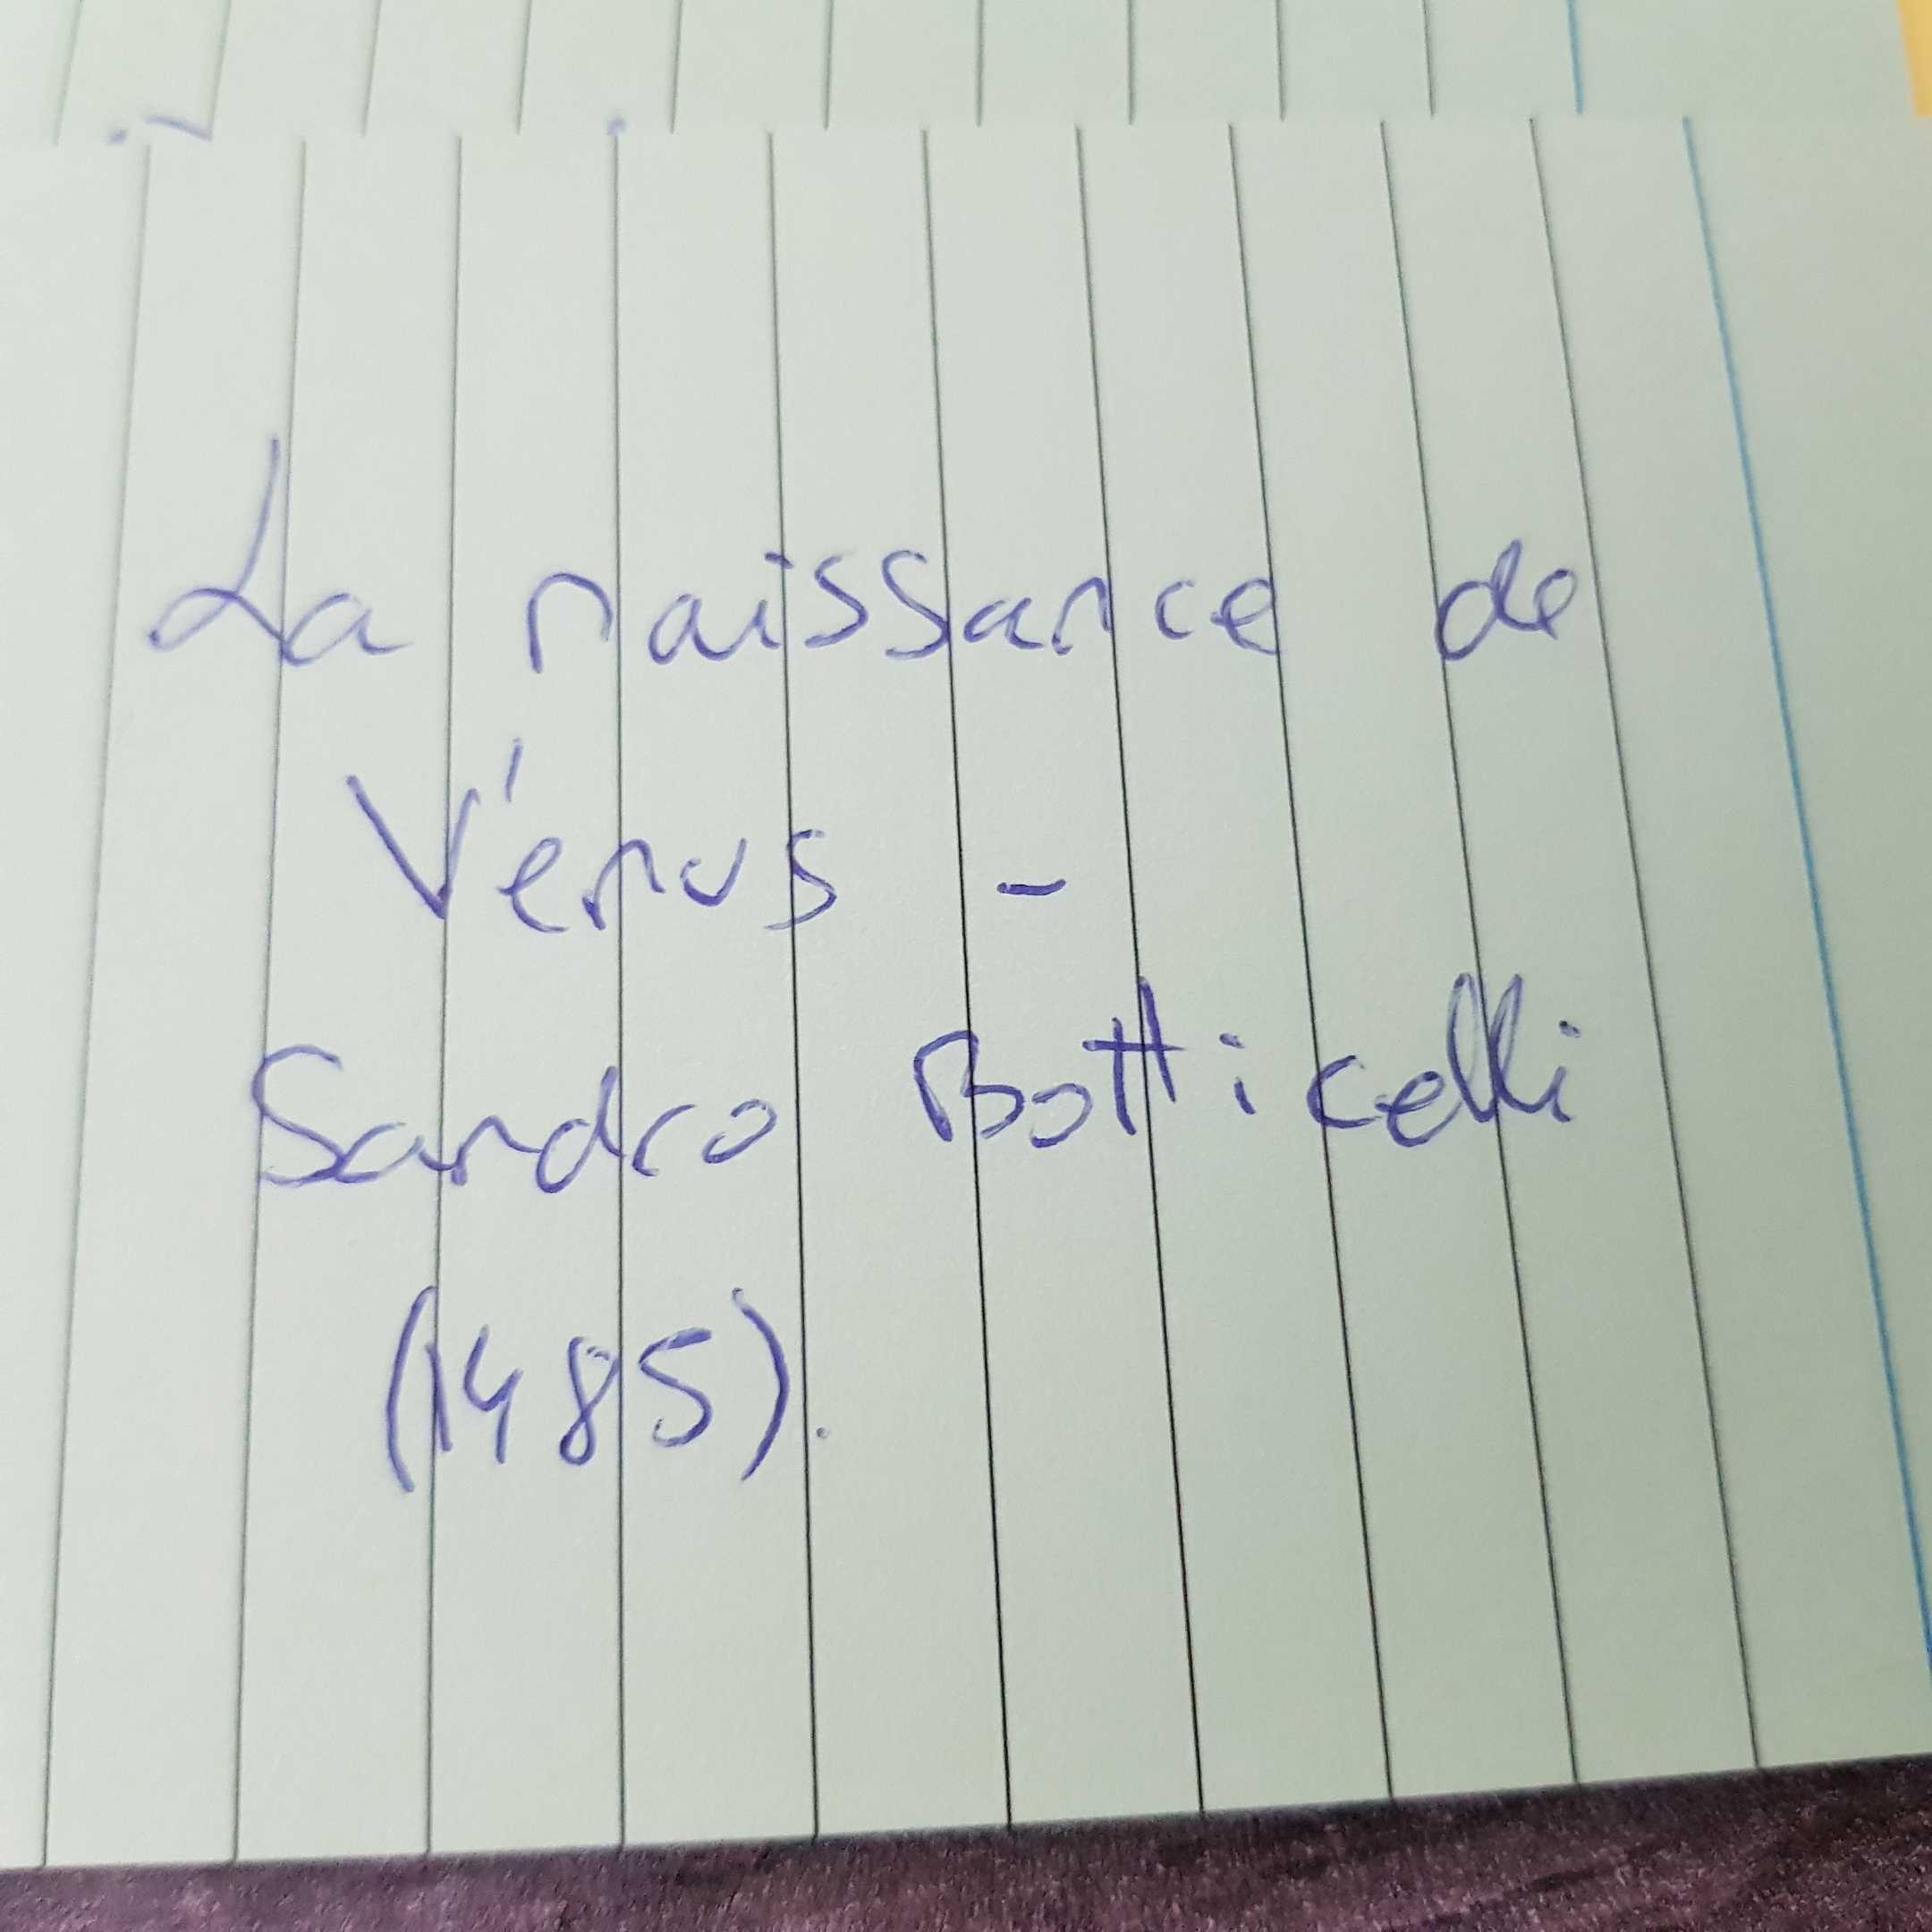 La naissance de
Vénus -
Sandro Botticelli
(1485).